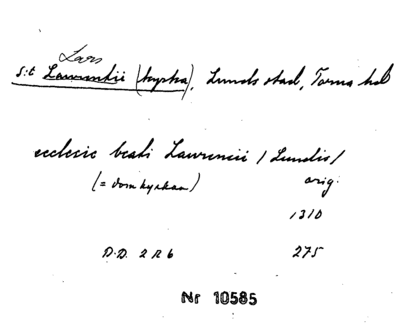 Lars
S:t Laurentii (kyrka), Lunds stad, Torna hd
ecclesie beati Lawrencii / Lundis /
(= domkyrkan) orig.
1310
D.D. 2 R 6 275
Nr 10585